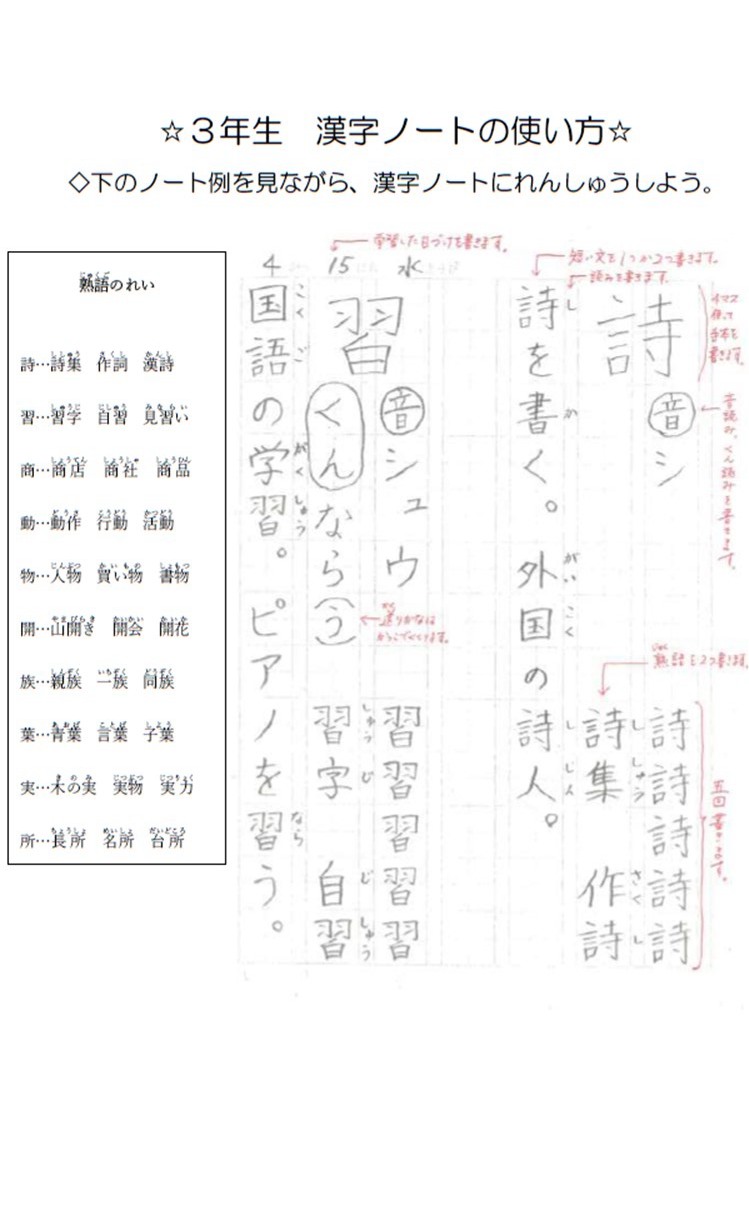 ☆３年生　漢字ノートの使い方☆
◇下のノート例を見ながら、漢字ノートにれんしゅうしよう。
熟語のれい
詩…詩集　作詞　漢詩
習…習字　自習　見習い
商…商店　商社　商品
動…動作　行動　活動
物…人物　買い物　書物
開…山開き　開会　開花
族…親族　一族　同族
葉…青葉　言葉　子葉
実…木の実　実物　実力
所…長所　名所　台所
学習した日づけを書きます。
4 15 水
短い文を1つか2つ書きます。
読みを書きます。
4マス使って
音読み、くん読みを書きます。
熟語を2つ書きます。
五回書きます。
送りがなは
詩
音シ
詩詩詩詩詩
詩集　作詩
ししゅう　さくし
詩を書く。外国の詩人。
し　か　がいこく　しじん
習
音シュウ
習習習習習
くんなら（う）
習字　自習
しゅうじ　じしゅう
国語の学習。ピアノを習う。
こくご　がくしゅう　なら